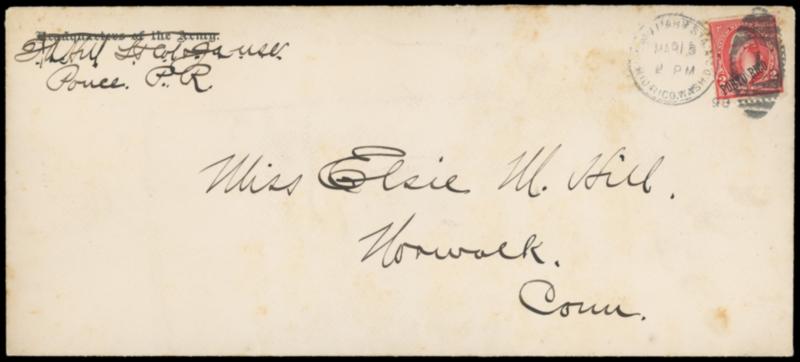 Headquarters of the Army.
Ponce. P.R.
MILITARY STA.
MAR 15
2 PM
98
PORTO RICO
2 2
Miss Elsie M. Hill.
Norwalk.
Conn.